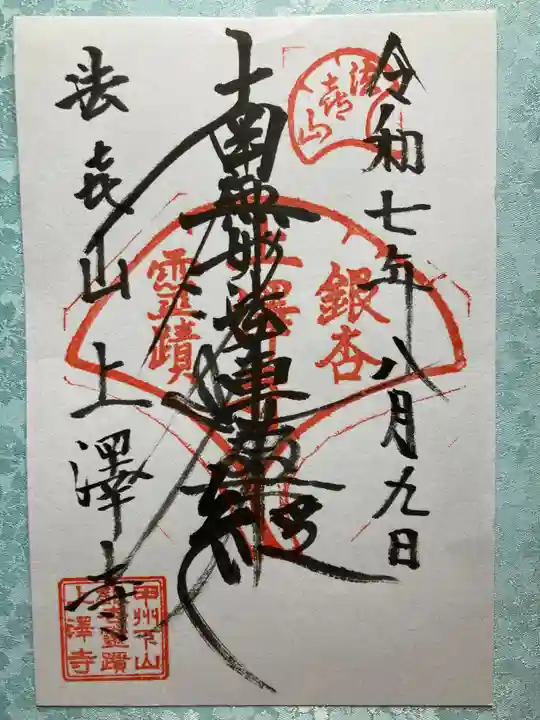 令和七年八月九日
南無妙法蓮華経
法㐂山上澤寺
法
喜
山
銀杏
上澤寺
靈蹟
甲州下山
銀杏靈蹟
上澤寺